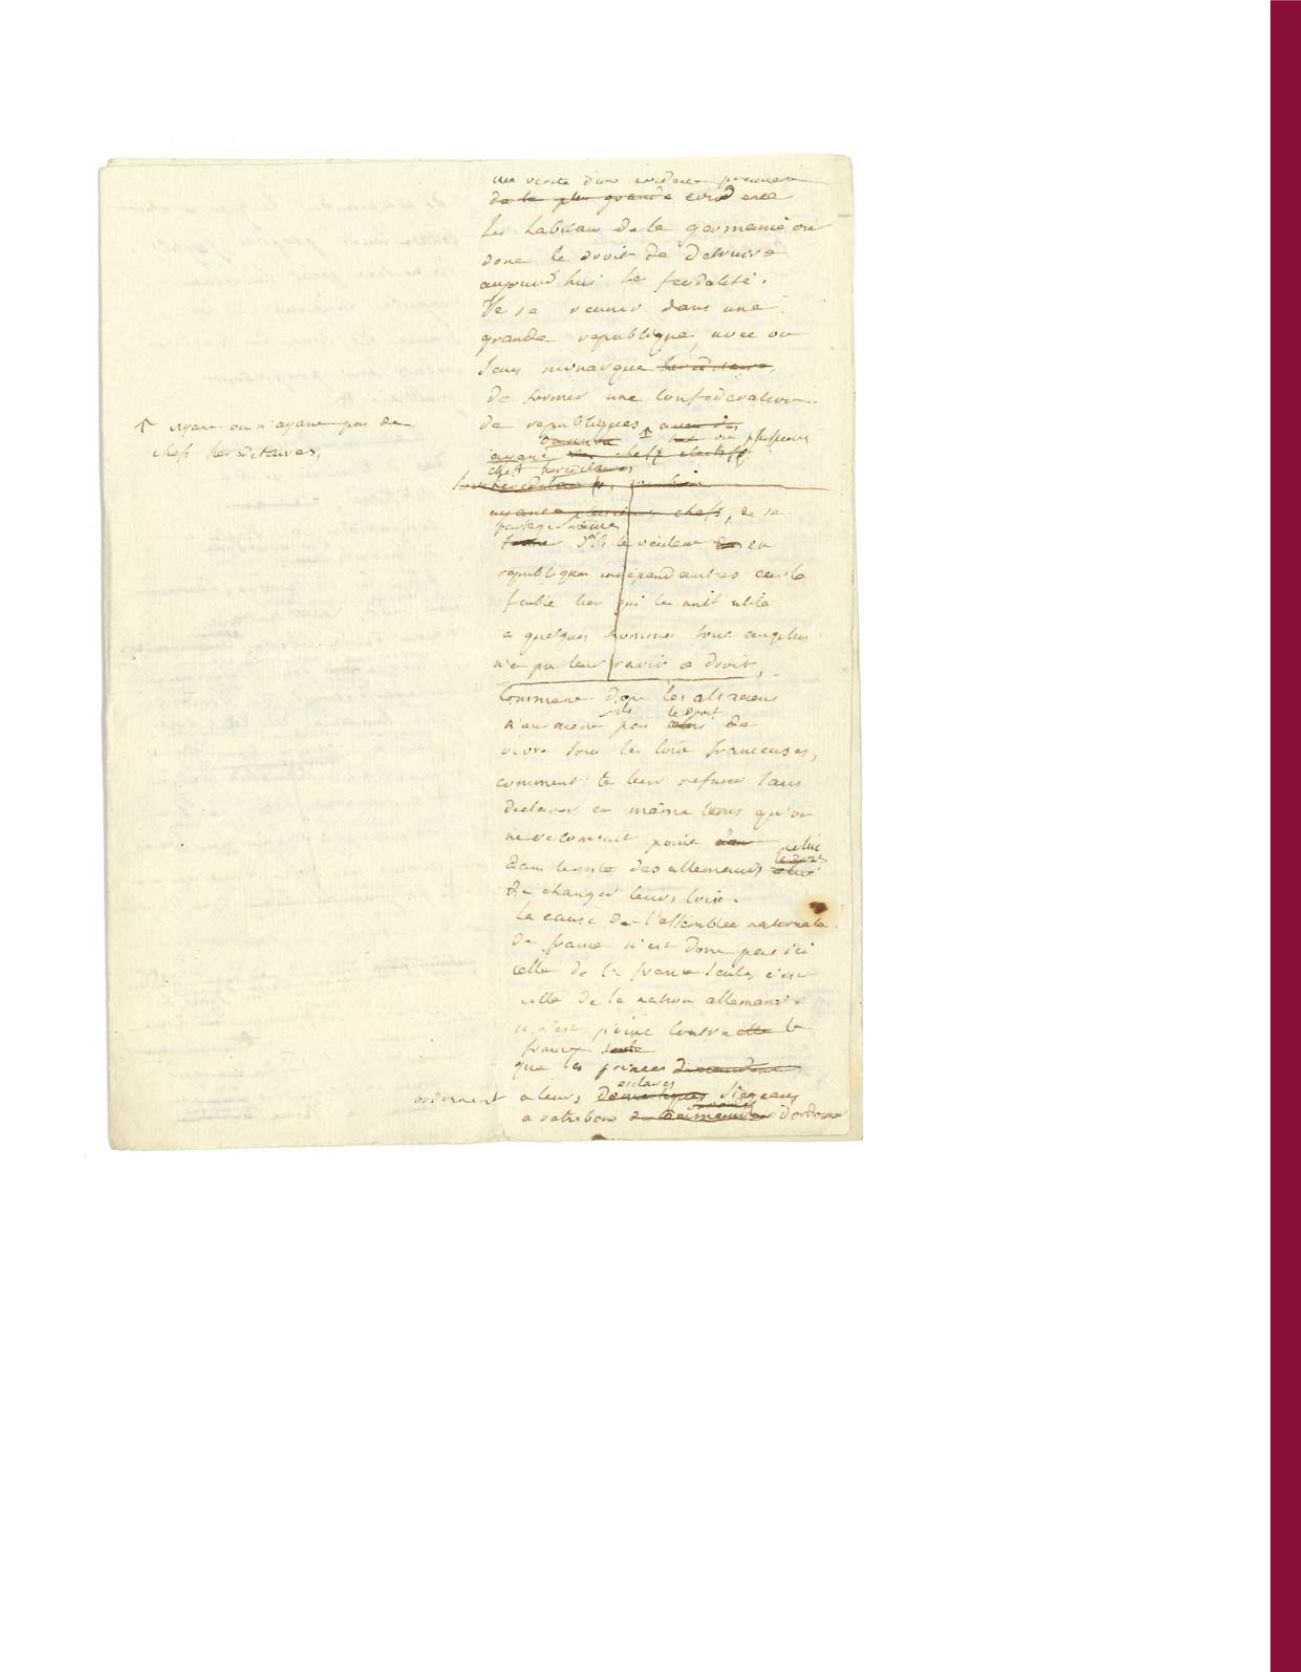 une verité d'une evidence premiere
de la plus grande evidence
les habitans de la germanie ont
donc le droit de detruire
aujourd'hui la feodalité.
De se reunir dans une
grande republique, avec ou
sans monarque hereditaire,
de former une confédération
de republiques
↑ ayant ou n'ayant pas de
chefs hereditaires,
ou plusieurs
ayant chefs electifs
chefs hereditaires
ayant plusieurs chefs, de se
partager même
s'ils le veulent en
republiques independantes car le
foible lien qui les unit utile
a quelques hommes tout au plus
n'a pu leur ravir ce droit,
Comment donc les alsaciens
n'auroient ils pas le droit de
vivre sous les loix francaises,
comment le leur refuser sans
declarer en même tems qu'on
ne reconnait point
dans le reste des allemands celui
de changer leurs loix.
La cause de l'assemblée nationale
de france n'est donc pas ici
celle de la france seule, c'est
celle de la nation allemande.
ce n'est point contre la
france seule
que les princes
ordonnent a leurs esclaves siegeans
a ratisbone d'ordonner